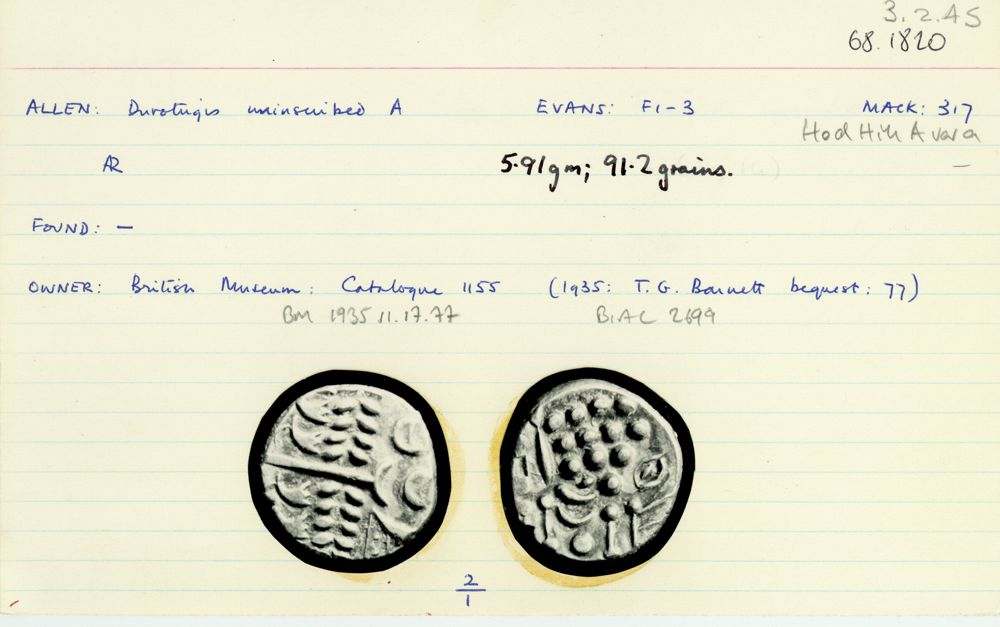 3.2.45
68.1820
ALLEN: Durotrigis uninscribed A EVANS: F1-3 MACK: 317
Hod Hill A var a
AR 5.91gm; 91.2 grains. —
FOUND: —
OWNER: British Museum: Catalogue 1155 (1935: T.G. Barnett bequest: 77)
BM 1935 11.17.77 BIAC 2699
2
1